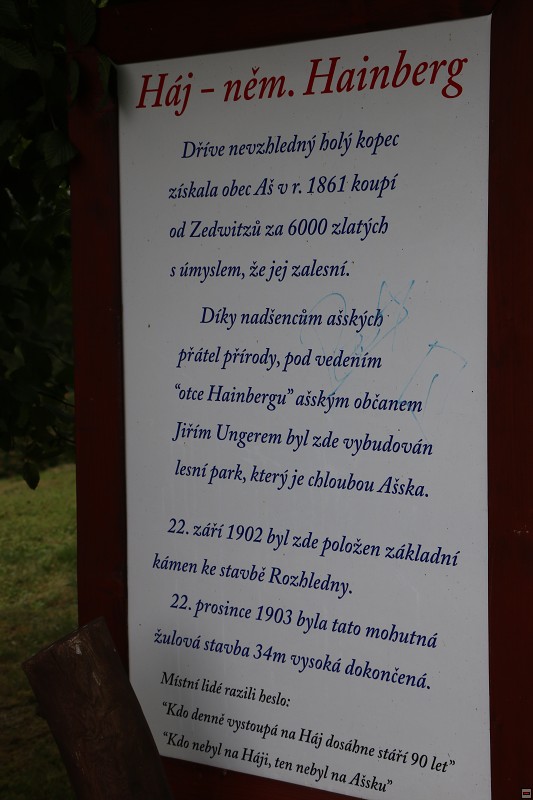 Háj - něm. Hainberg
Dříve nevzhledný holý kopec
získala obec Aš v r. 1861 koupí
od Zedwitzů za 6000 zlatých
s úmyslem, že jej zalesní.
Díky nadšencům ašských
přátel přírody, pod vedením
“otce Hainbergu” ašským občanem
Jiřím Ungerem byl zde vybudován
lesní park, který je chloubou Ašska.
22. září 1902 byl zde položen základní
kámen ke stavbě Rozhledny.
22. prosince 1903 byla tato mohutná
žulová stavba 34m vysoká dokončená.
Místní lidé razili heslo:
“Kdo denně vystoupá na Háj dosáhne stáří 90 let”
“Kdo nebyl na Háji, ten nebyl na Ašsku”